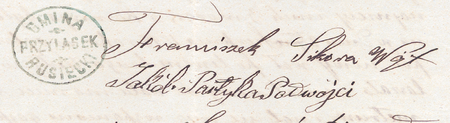 GMINA
PRZYLASEK
RUSIECKI
Franciszek Sikora Wójt
Jakób Partyka Podwójci